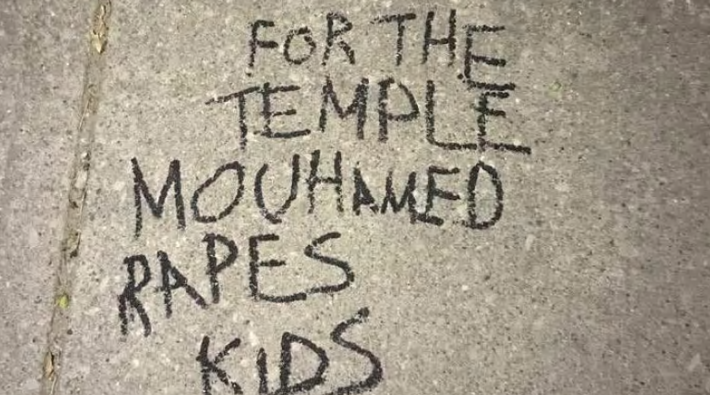 FOR THE
TEMPLE
MOUHAMED
RAPES
KIDS